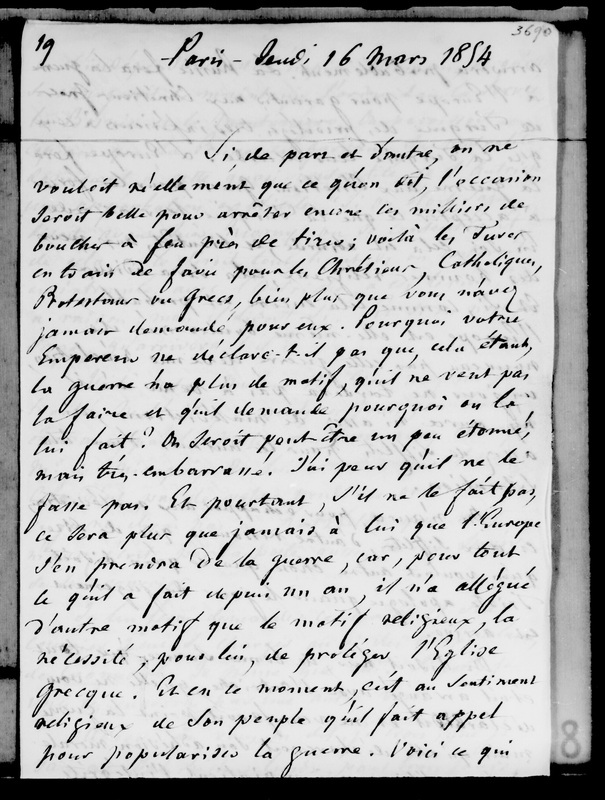 3690
19
Paris - Jeudi 16 Mars 1854
Si, de part et d'autre, on ne
vouloit réellement que ce qu'on dit, l'occasion
seroit belle pour arrêter encore ces milliers de
bouches à feu près de tirer; voilà les Turcs
en train de faire pour les Chrétiens, Catholiques,
Protestans ou Grecs, bien plus que vous n'avez
jamais demandé pour eux. Pourquoi votre
Empereur ne déclare-t-il pas que, cela étant,
la guerre n'a plus de motif, qu'il ne veut pas
la faire et qu'il demande pourquoi on la
lui fait? On seroit peut-être un peu étonné,
mais très-embarrassé. J'ai peur qu'il ne le
fasse pas. Et pourtant, s'il ne le fait pas,
ce sera plus que jamais à lui que l'Europe
s'en prendra de la guerre, car, pour tout
ce qu'il a fait depuis un an, il n'a allégué
d'autre motif que le motif religieux, la
nécessité, pour lui, de protéger l'Eglise
grecque. Et en ce moment, c'est au sentiment
religieux de son peuple qu'il fait appel
pour populariser la guerre. Voici ce qui
8